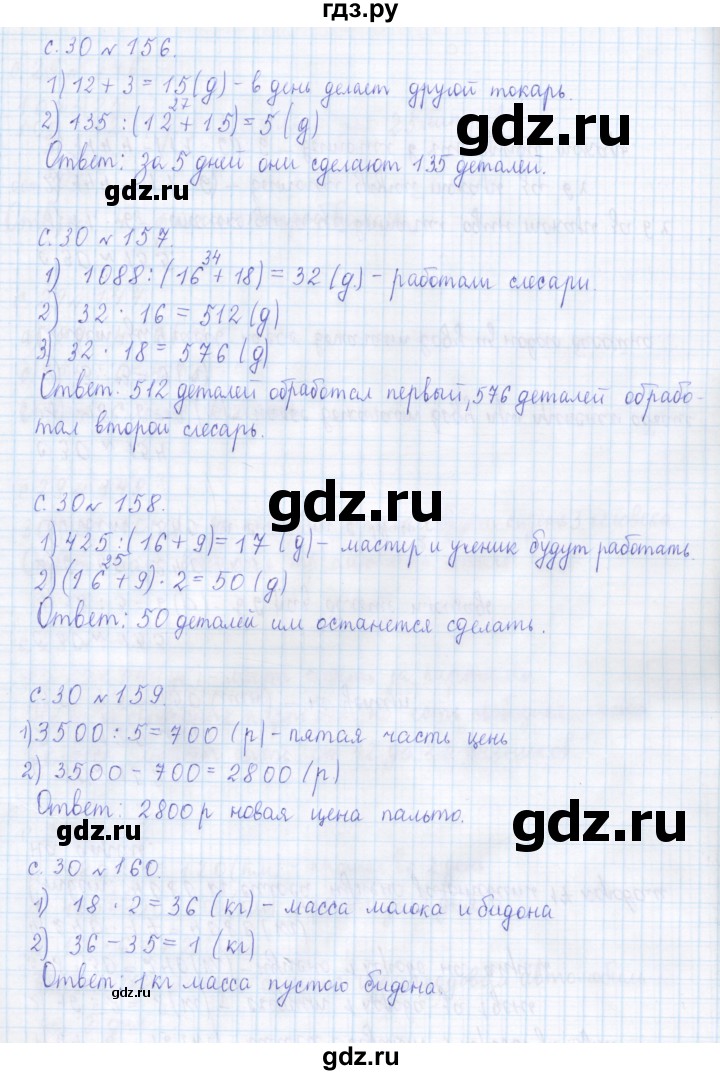 гдз.ру
с. 30 № 156.
1) 12 + 3 = 15 (д) – в день делает другой токарь.
27
2) 135 : (12 + 15) = 5 (д)
Ответ: за 5 дней они сделают 135 деталей.
gdz.ru
gdz.ru
с. 30 № 157.
34
1) 1088 : (16 + 18) = 32 (д) – работали слесари.
2) 32 · 16 = 512 (д)
3) 32 · 18 = 576 (д)
Ответ. 512 деталей обработал первый, 576 деталей обрабо-
тал второй слесарь.
gdz.ru
с. 30 № 158.
1) 425 : (16 + 9) = 17 (д) – мастер и ученик будут работать.
25
2) (16 + 9) · 2 = 50 (д)
Ответ: 50 деталей им останется сделать.
с. 30 № 159.
1) 3500 : 5 = 700 (р) – пятая часть цены
2) 3500 – 700 = 2800 (р)
Ответ: 2800 р новая цена пальто.
gdz.ru
gdz.ru
с. 30 № 160.
1) 18 · 2 = 36 (кг) – масса молока и бидона
2) 36 – 35 = 1 (кг)
Ответ: 1 кг масса пустого бидона.
gdz.ru
gdz.ru